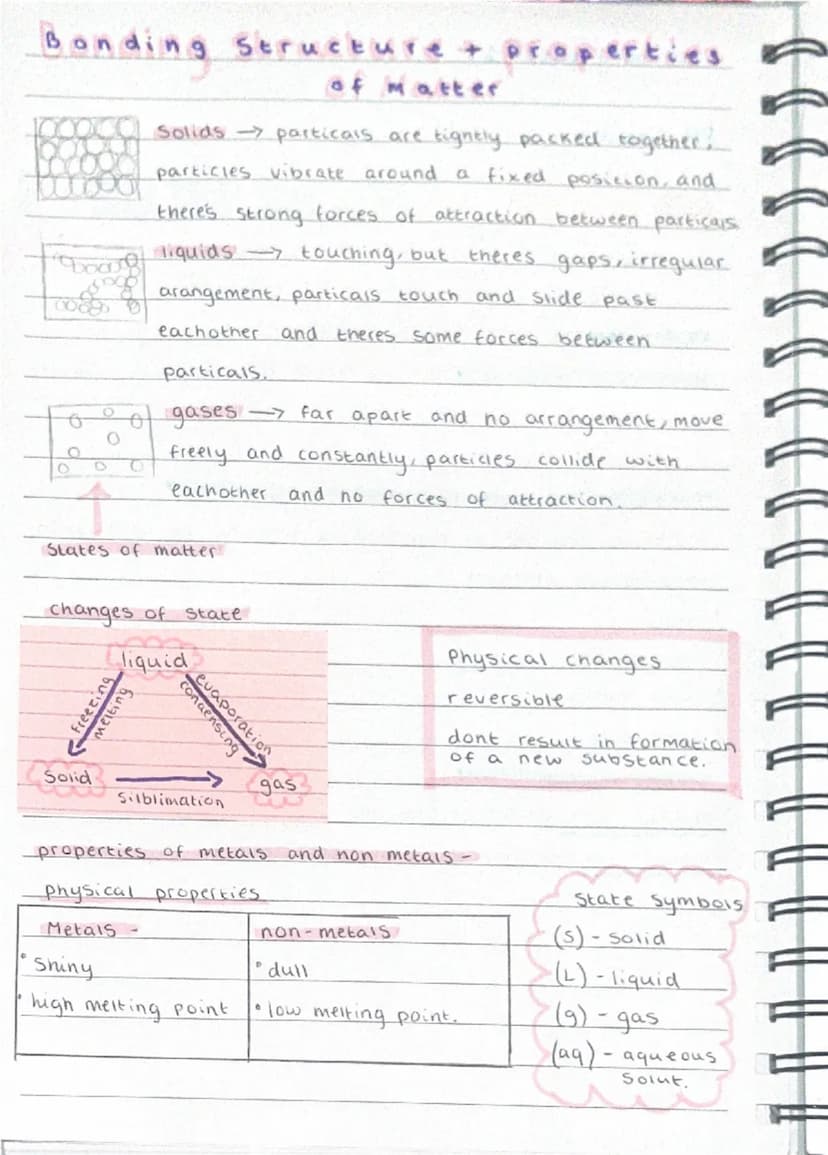 Bonding Structure + properties
of Matter
Solids → particals are tightly packed together,
particles vibrate around a fixed posicion, and
there's strong forces of attraction between particals
liquids → touching, but theres gaps, irregular
arangement, particals touch and slide past
eachother and theres some forces between
particals.
gases → far apart and no arrangement, move
freely and constantly, particles collide with
eachother and no forces of attraction.
States of matter
changes of state
liquid
freezing
melting
evaporation
condensing
Solid
gas
Silblimation
Physical changes
reversible
dont result in formation
of a new substance.
properties of metals and non metals -
physical properties
Metals -
non-metals
• Shiny
• dull
• high melting point
• low melting point.
State Symbols
(S) - solid
(L) - liquid
(g) - gas
(aq) - aqueous
Solut.